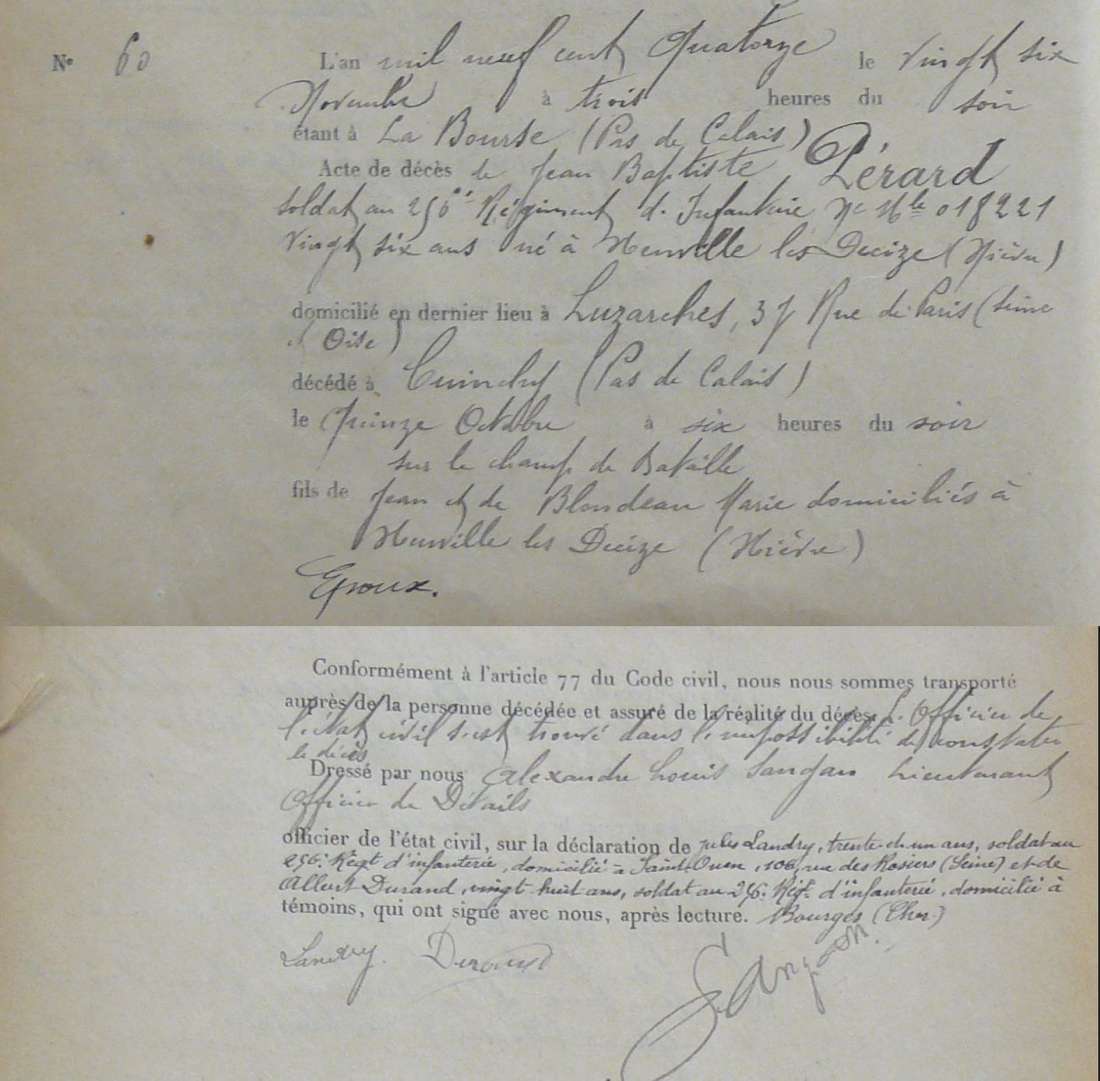 N° 60 L'an mil neuf cent Quatorze le vingt six
Novembre à trois heures du soir
étant à La Bourse (Pas de Calais)
Acte de décès de Jean Baptiste Pérard
soldat au 296e Régiment d'Infanterie No Mle 018221
vingt six ans né à Neuville les Decize (Nièvre)
domicilié en dernier lieu à Luzarches, 37 Rue de Paris (Seine
et Oise)
décédé à Cuinchy (Pas de Calais)
le quinze Octobre à six heures du soir
sur le champ de Bataille
fils de Jean et de Blondeau Marie domiciliés à
Neuville les Decize (Nièvre)
Époux.
Conformément à l'article 77 du Code civil, nous nous sommes transporté
auprès de la personne décédée et assuré de la réalité du décès. L'Officier de
l'état civil s'est trouvé dans l'impossibilité de constater
le décès
Dressé par nous Alexandre Louis Sanguan Lieutenant
Officier de Détails
officier de l'état civil, sur la déclaration de Jules Landry, trente-et-un ans, soldat au
296. Régt d'infanterie, domicilié à Saint-Ouen, 106, rue des Rosiers (Seine) et de
Albert Durand, vingt-huit ans, soldat au 296. Régt d'infanterie, domicilié à
témoins, qui ont signé avec nous, après lecture. Bourges (Cher)
Landry. Durand